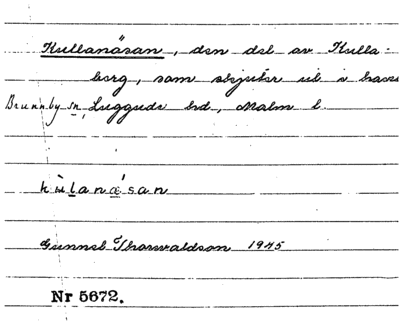 Kullanäsan, den del av Kulla-
berg, som skjuter ut i havet
Brunnby sn, Luggude hd, Malm l.
kùlanǽsan
Gunnel Thorwaldson 1945
Nr 5672.